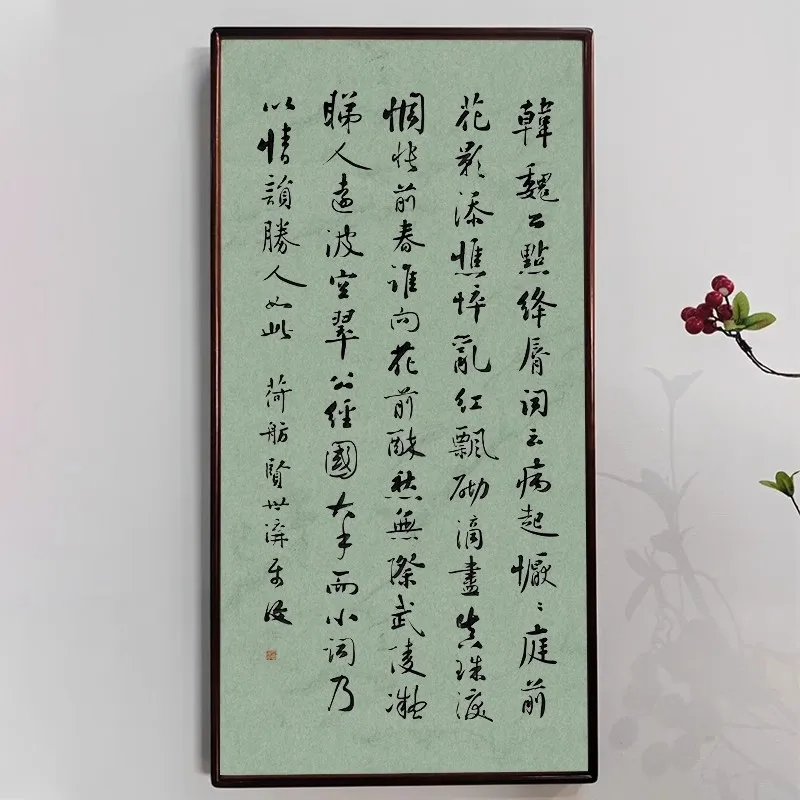 韓魏公點絳脣詞云病起懨〻庭前
花影添憔悴亂紅飄砌滴盡真珠淚
惆悵前春誰向花前醉愁無際武陵凝
睇人遠波空翠公經國大手而小詞乃
以情韻勝人如此 荷舫賢世